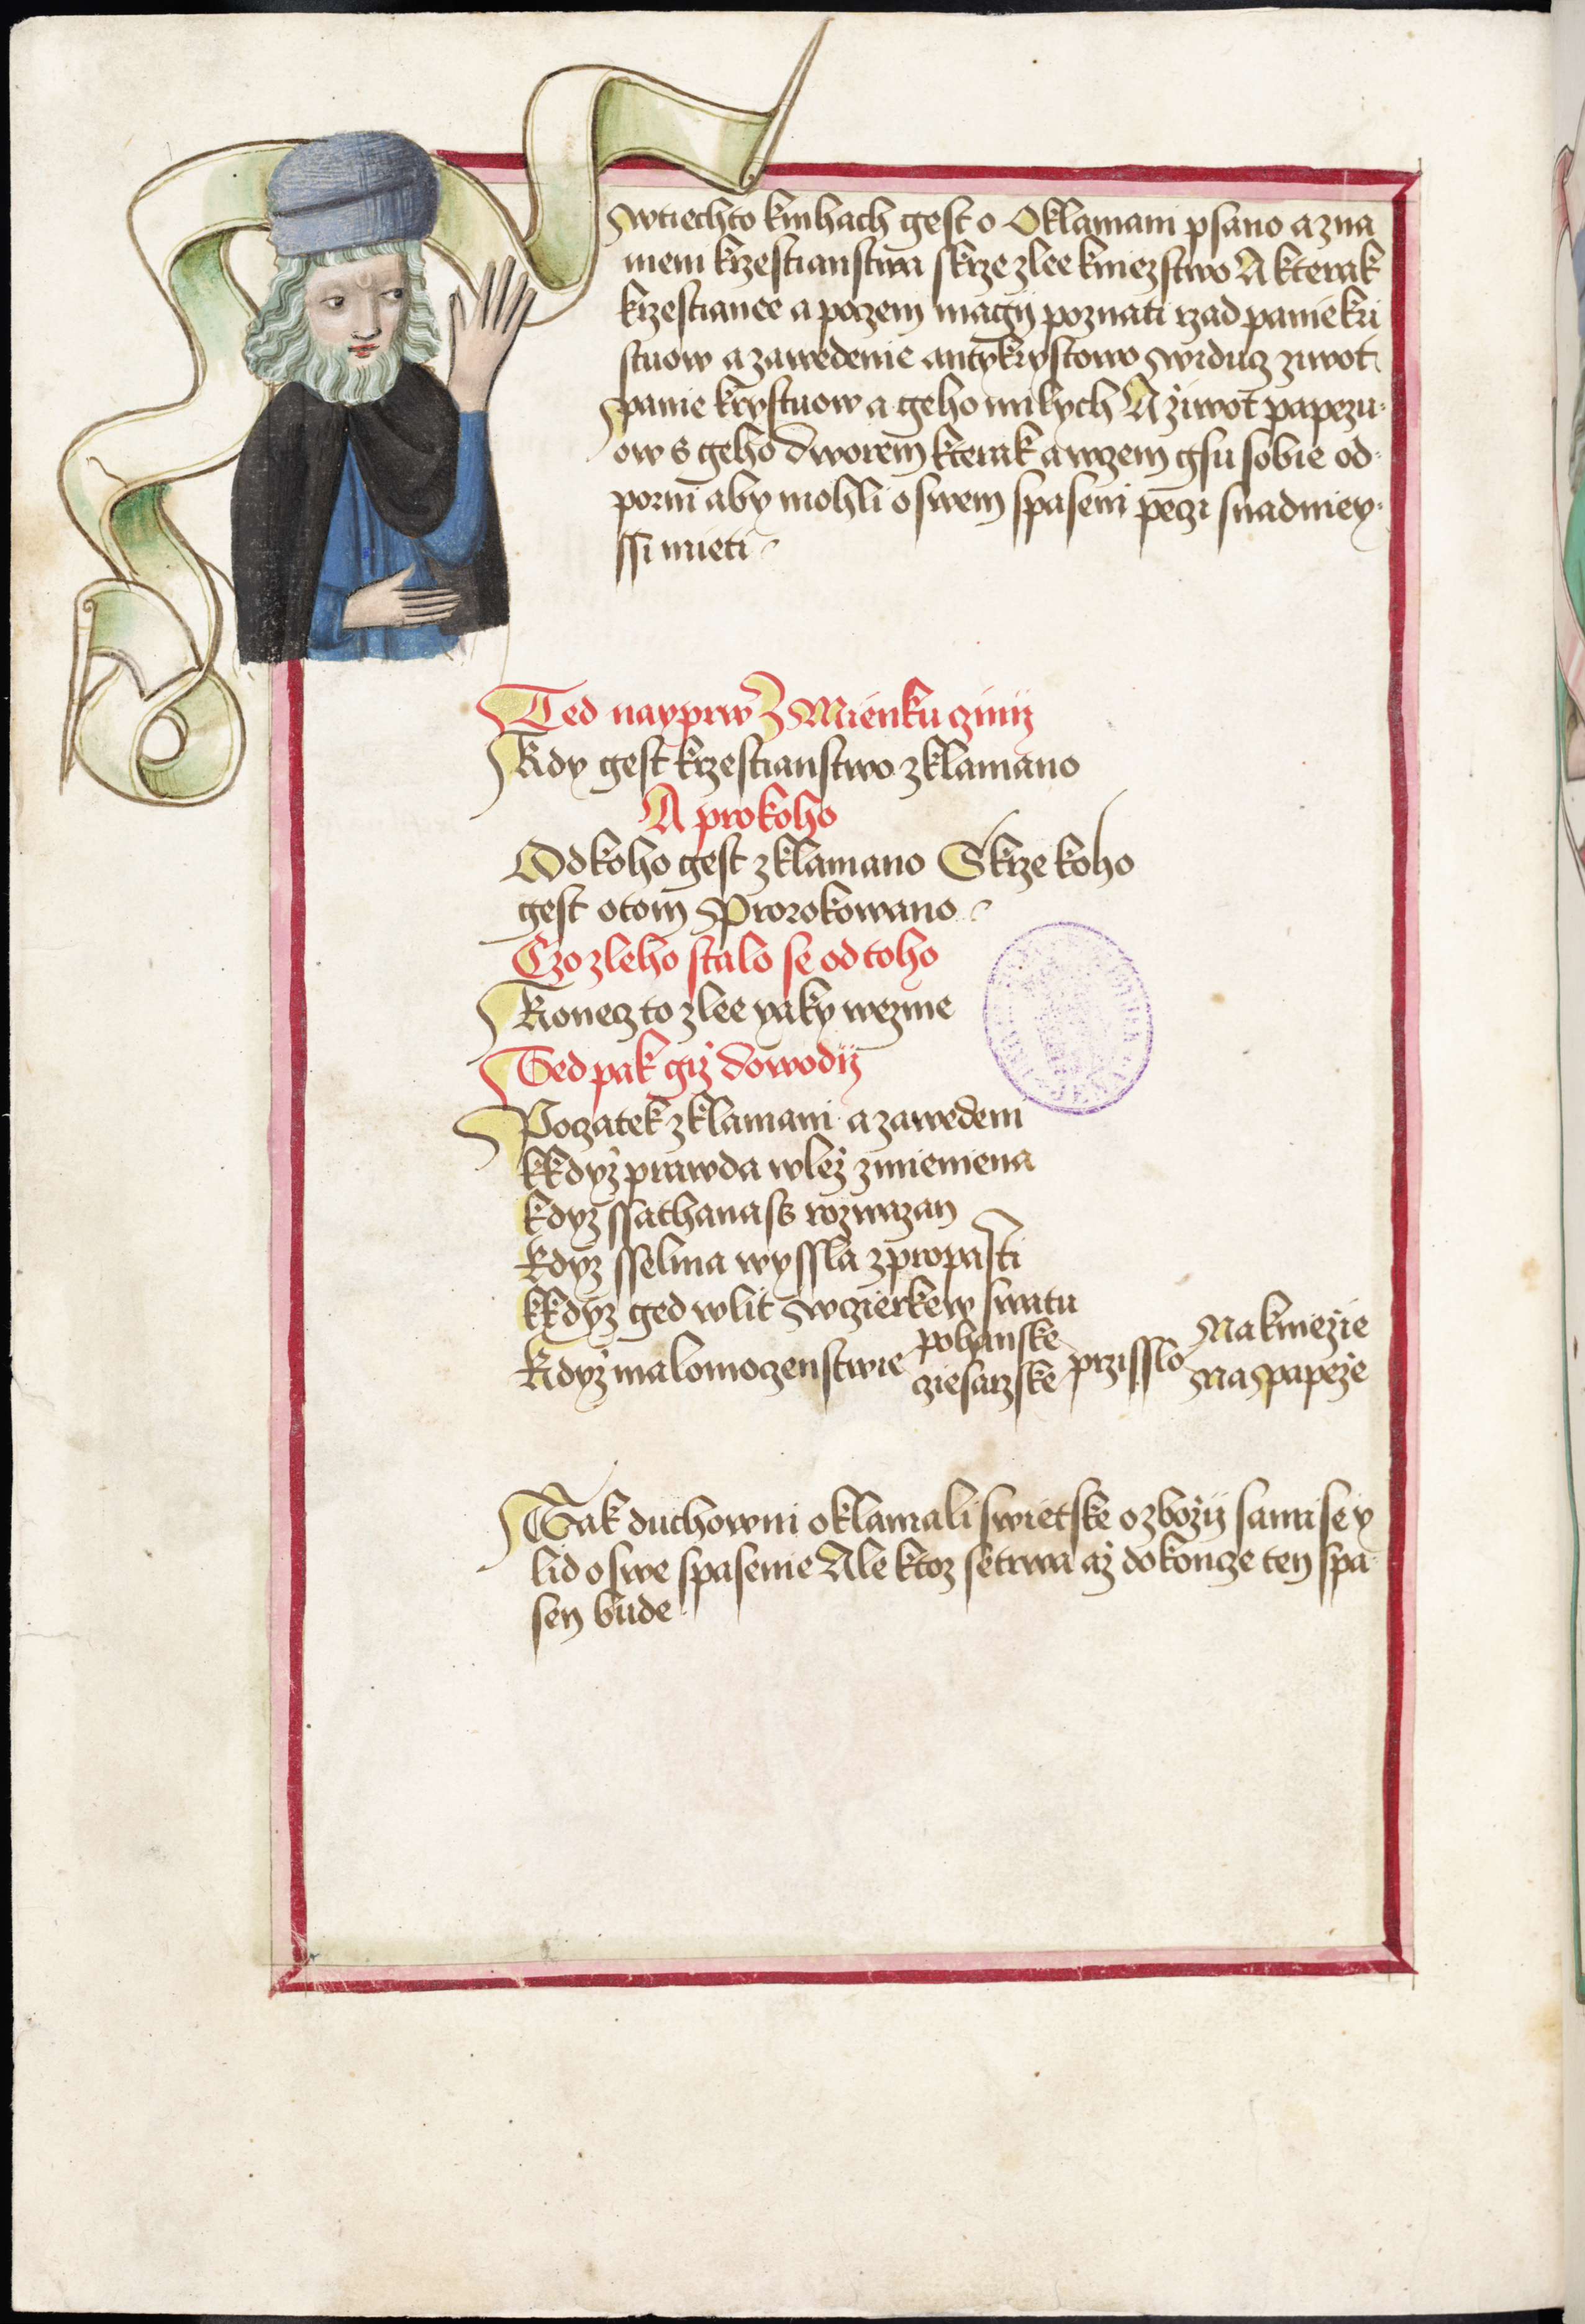 Wtiechto knihach gest o Oklamani psano a zna
meni krzestianstwa skrze zlee kniezstwo A kterak
krzestianee a poczem magij poznati rzad panie kri
stuow a zawedenie antykrystowo Widucz ziwot
Panie krystuow a geho milych A żiwot papezu-
ow s geho Dworem kterak a wczem gsu sobie od-
porni aby mohli o swem spaseni peczi snadniey-
ssi mieti
Ted nayprw Zmienku czinij
Kdy gest krzestianstwo zklamano
A pro koho
Od koho gest zklamano Skrze koho
gest o tom Prorokowano
Czo zleho stalo se od toho
Konecz to zlee yaky wezme
Ted pak giż dowodij
Poczatek zklamani a zawedeni
kKdyż prawda w leż zmieniena
kdyz ssathanass rozwazan
kdyz sselma wyssla z propasti
kKdyz ged wlit W czierkew swatu
Kdyż malomoczenstwie pohanske cziesarzske przisslo Na knieżie Na Papeże
Tak duchowni oklamali swietske o zbożij sami se y
lid o swe spasenie Ale ktoz setrwa aż do koncze ten spa-
sen bude